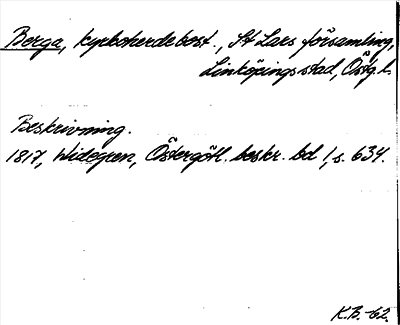 Berga, kyrkoherdebost., St Lars församling,
Linköpings stad, Östg.l.
Beskrivning.
1817, Widegren, Östergötl. beskr. bd 1, s. 634.
K.B. -62.